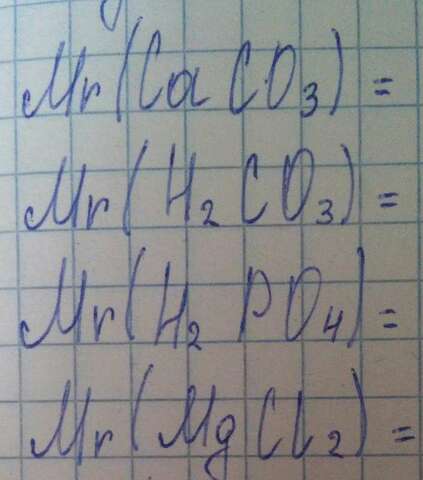 Mr(CaCO₃) =
Mr(H₂CO₃) =
Mr(H₂PO₄) =
Mr(MgCl₂) =